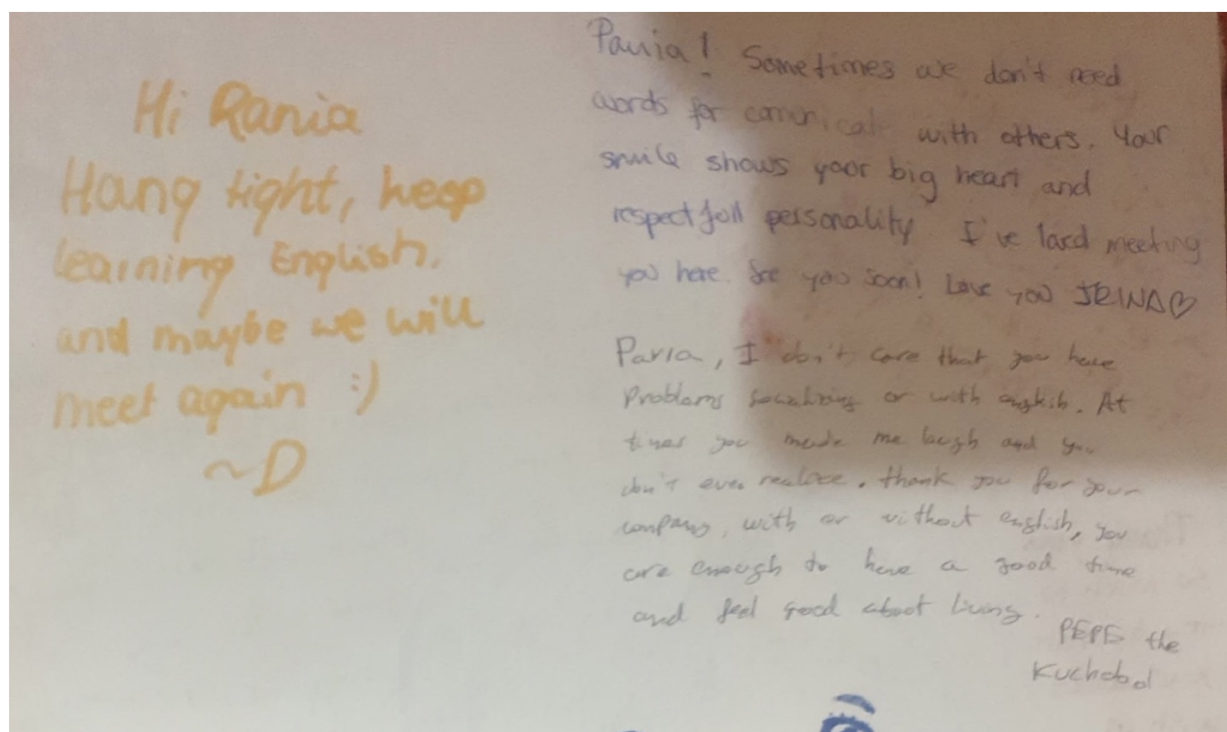 Hi Rania
Hang tight, keep
learning English.
and maybe we will
meet again :)
~D
Pania! Sometimes we don't need
words for comunicate with others. Your
smile shows your big heart and
respectfull personality I've lovd meeting
you here. See you soon! Love you IRINA♡
Pavia, I don't care that you have
problems socializing or with english. At
times you made me laugh and you
don't even realize. thank you for your
company, with or without english, you
are enough to have a good time
and feel good about living.
PEPE the